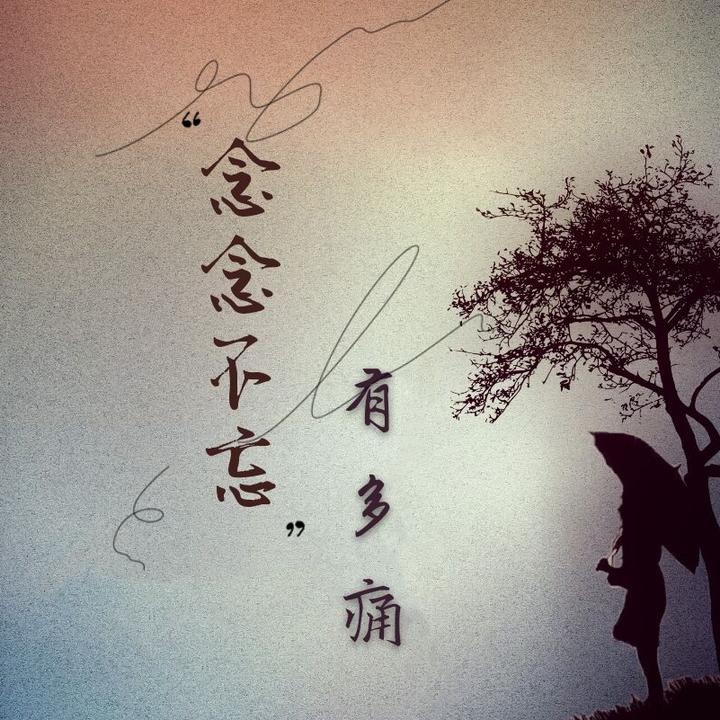 “念念不忘”
有多痛